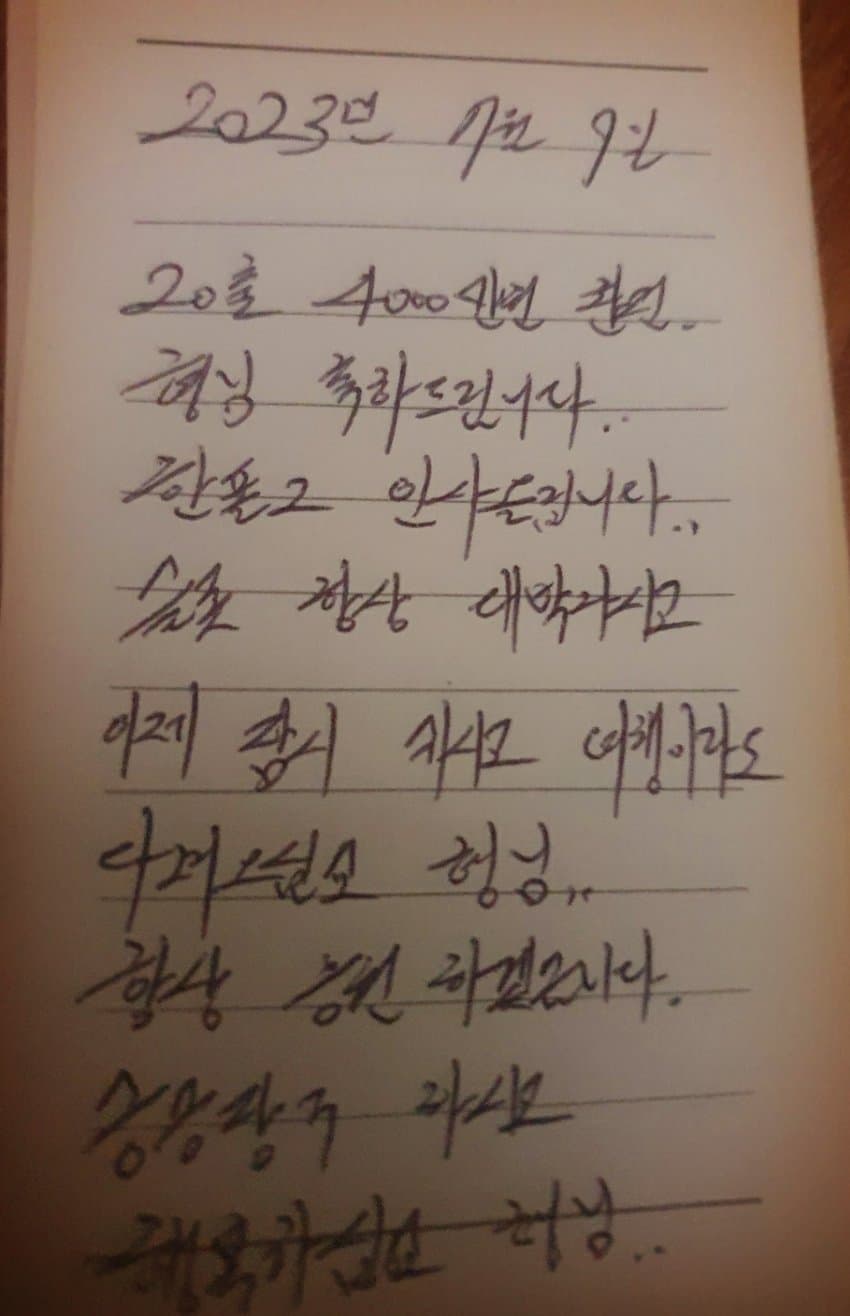 2023년 7월 9일
20홀 4000만번
형님 축하드립니다..
인사드립니다..
항상 대박나시고
이제 잠시 쉬시고 여행이라도
다녀오십쇼 형님..
항상 응원 하겠습니다.
승승장구 하시고
행복하십쇼 형님..